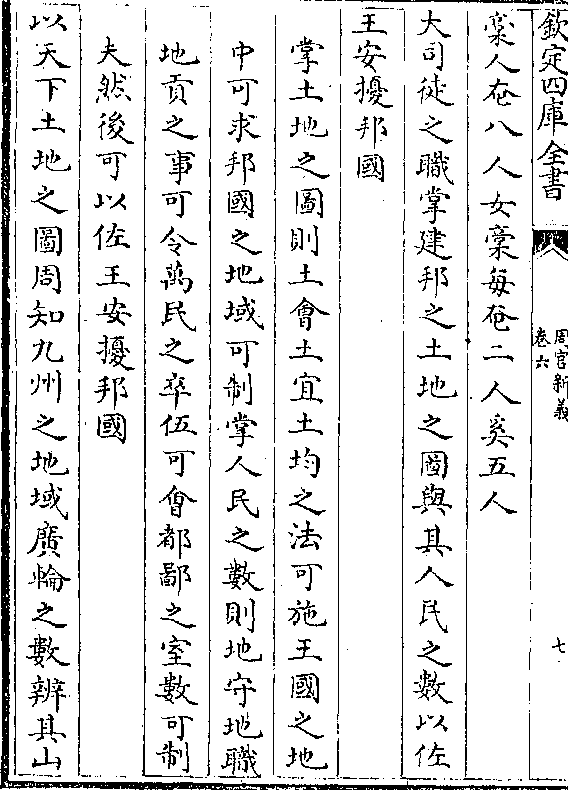 欽定四庫全書
周官新義
卷六
七
槀人奄八人女槀每奄二人奚五人
大司徒之職掌建邦之土地之圖與其人民之數以佐
王安擾邦國
掌土地之圖則土會土宜土均之法可施王國之地
中可求邦國之地域可制掌人民之數則地守地職
地貢之事可令萬民之卒伍可會都鄙之室數可制
夫然後可以佐王安擾邦國
以天下土地之圖周知九州之地域廣輪之數辨其山